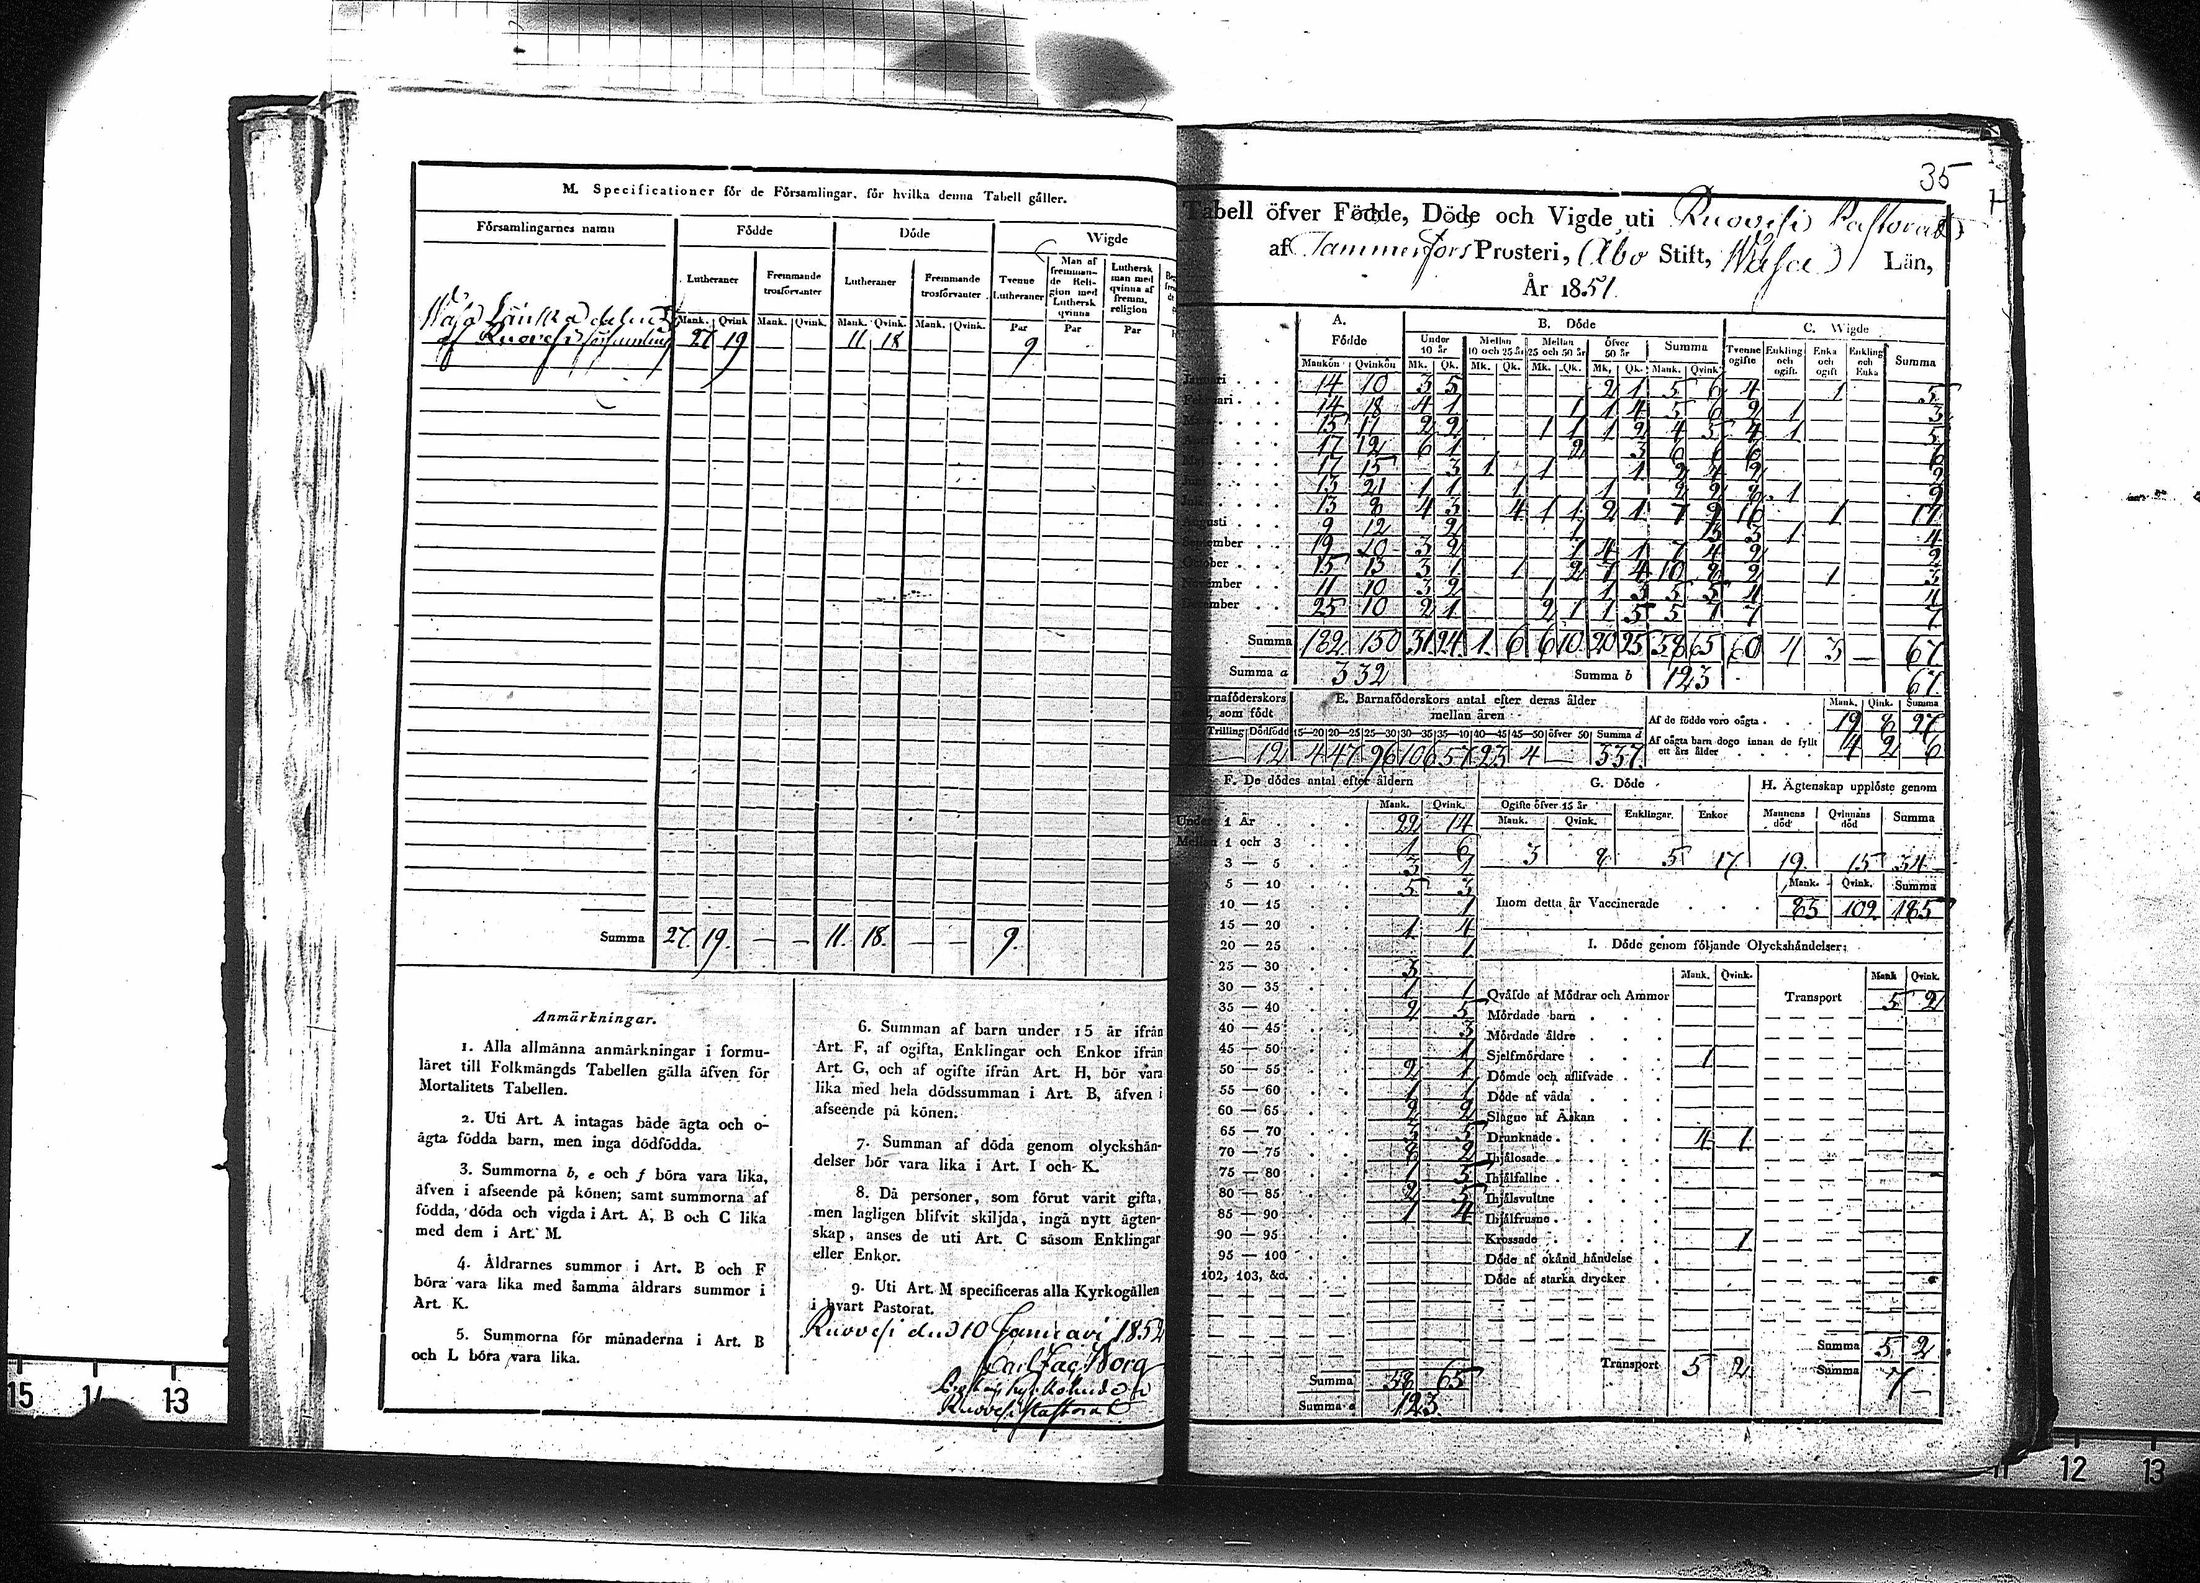 M. Specificationer för de Församlingar, för hvilka denna Tabell gäller.
Församlingarnes namn Födde Döde Wigde
Lutheraner Fremmande trosförvanter Lutheraner Fremmande trosförvanter Tvenne Lutheraner Man af fremmande Religion med Luthersk qvinna Luthersk man med qvinna af fremm. religion
Mank. Qvink Mank. Qvink. Mank. Qvink. Mank. Qvink. Par Par Par
af Ruovesi församling 27 19 11 18 9
Summa 27. 19. — — 11. 18. — — 9.
Anmärkningar.
1. Alla allmänna anmärkningar i formu-
läret till Folkmängds Tabellen gälla äfven för
Mortalitets Tabellen.
2. Uti Art. A intagas både ägta och o-
ägta födda barn, men inga dödfödda.
3. Summorna b, e och f böra vara lika,
äfven i afseende på könen; samt summorna af
födda, döda och vigda i Art. A, B och C lika
med dem i Art. M.
4. Åldrarnes summor i Art. B och F
böra vara lika med samma åldrars summor i
Art. K.
5. Summorna för månaderna i Art. B
och L böra vara lika.
6. Summan af barn under 15 år ifrån
Art. F, af ogifta, Enklingar och Enkor ifrån
Art. G, och af ogifte ifrån Art. H, bör vara
lika med hela dödssumman i Art. B, äfven i
afseende på könen.
7. Summan af döda genom olyckshän-
delser bör vara lika i Art. I och K.
8. Då personer, som förut varit gifta,
men lagligen blifvit skiljda, ingå nytt ägten-
skap, anses de uti Art. C såsom Enklingar
eller Enkor.
9. Uti Art. M specificeras alla Kyrkogällen
i hvart Pastorat.
Ruovesi den 10 Januari 1852
Carl Jac. Borg
Ruovesi Pastorat
35
Tabell öfver Födde, Döde och Vigde uti Ruovesi Pastorat
af Tammerfors Prosteri, Åbo Stift, Wasa Län,
År 1851.
A. Födde B. Döde C. Wigde
Under 10 år Mellan 10 och 25 år Mellan 25 och 50 år öfver 50 år Summa Tvenne ogifte Enkling och ogift. Enka och ogift Enkling och Enka Summa
Mankön Qvinkön Mk. Qk. Mk. Qk. Mk. Qk. Mk. Qk. Mank. Qvink
Januari 14 10 3 5 2 1 5 6 4 1 5
Februari 14 18 4 1 1 1 4 5 6 2 1 3
15 11 2 2 1 1 1 2 4 5 4 1 5
17 12 6 1 2 3 6 6 6 6
17 15 3 1 1 1 2 4 2 2
13 21 1 1 1 1 2 2
13 8 4 3 4 1 1 2 1 7 9 10 1 11
Augusti 9 12 2 1 3 3 1 4
September 19 10 3 2 1 4 1 7 4 2 2
October 15 13 3 1 1 2 7 4 10 8 2 1 3
November 11 10 3 2 1 1 3 5 5 4 4
December 25 10 2 1 2 1 1 5 5 7 7 7
Summa 182 150 31 24 1 6 6 10 20 25 58 65 60 4 3 — 67
Summa a 332 Summa b 123 67
Barnaföderskors
som födt
Trilling Dödfödd
12
E. Barnaföderskors antal efter deras ålder
mellan åren
15—20 20—25 25—30 30—35 35—40 40—45 45—50 öfver 50 Summa d
4 47 96 106 57 23 4 — 337
Mank. Qink. Summa
Af de födde voro oägta 19 8 27
Af oägta barn dogo innan de fyllt ett års ålder 4 2 6
F. De dödes antal efter åldern
Mank. Qvink.
Under 1 År 22 14
Mellan 1 och 3 1 6
3 — 5 3 1
5 — 10 5 3
10 — 15 1
15 — 20 1 4
20 — 25 1
25 — 30 3
30 — 35 1 1
35 — 40 2 5
40 — 45 3
45 — 50 1
50 — 55 2 1
55 — 60 1 1
60 — 65 2 2
65 — 70 3 5
70 — 75 8 2
75 — 80 1 5
80 — 85 2 5
85 — 90 1 4
90 — 95
95 — 100
102, 103, &c.
Summa 58 65
Summa e 123
G. Döde
Ogifte öfver 15 år Enklingar. Enkor
Mank. Qvink.
3 8 5 17
H. Ägtenskap upplöste genom
Mannens död Qvinnans död Summa
19 15 34
Mank. Qvink. Summa
Inom detta år Vaccinerade 83 102 185
I. Döde genom följande Olyckshändelser:
Mank. Qvink. Mank Qvink.
Qväfde af Mödrar och Ammor Transport 5 2
Mördade barn
Mördade äldre
Sjelfmördare 1
Dömde och aflifvade
Döde af våda
Slagne af Åskan
Drunknade 4 1
Ihjälosade
Ihjälfallne
Ihjälsvultne
Ihjälfrusne
Krossade 1
Döde af okänd händelse
Döde af starka drycker
Summa 5 2
Transport 5 2 Summa 7
15 14 13
11 12 13